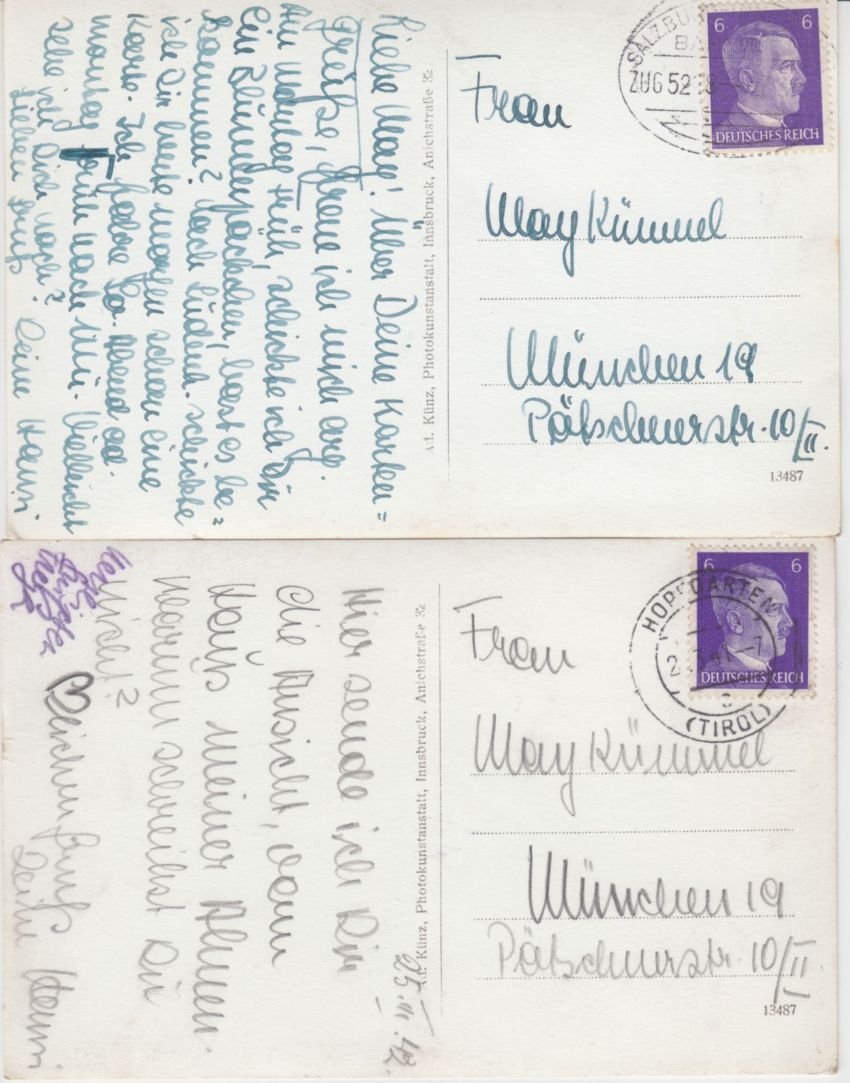 Liebe May! Über Deine Karten=
grüße, freue ich mich arg.
Am Montag früh, schickte ich Dir
ein Blumenpäckchen, hast es be=
kommen? Nach Südend. schickte
ich Dir heute morgen schon eine
Karte. Ich fahre So. Abend od.
Montag früh nach Mü. Vielleicht
sehe ich Dich noch?
Lieben Gruß Deine Hanni
Ad. Künz, Photokunstanstalt, Innsbruck, Anichstraße 32
SALZBU
BA
ZUG 52
6 6
DEUTSCHES REICH
Frau
May Kümmel
München 19
Pötschnerstr. 10/II.
13487
25.II.42.
Hier sende ich Dir
die Ansicht, vom
Haus meiner Ahnen.
Warum schreibst Du
nicht?
♡lichen Gruß
Deine Hanni
Ad. Künz, Photokunstanstalt, Innsbruck, Anichstraße 32
HOPFGARTEN
(TIROL)
6 6
DEUTSCHES REICH
Frau
May Kümmel
München 19
Pötschnerstr. 10/II
13487